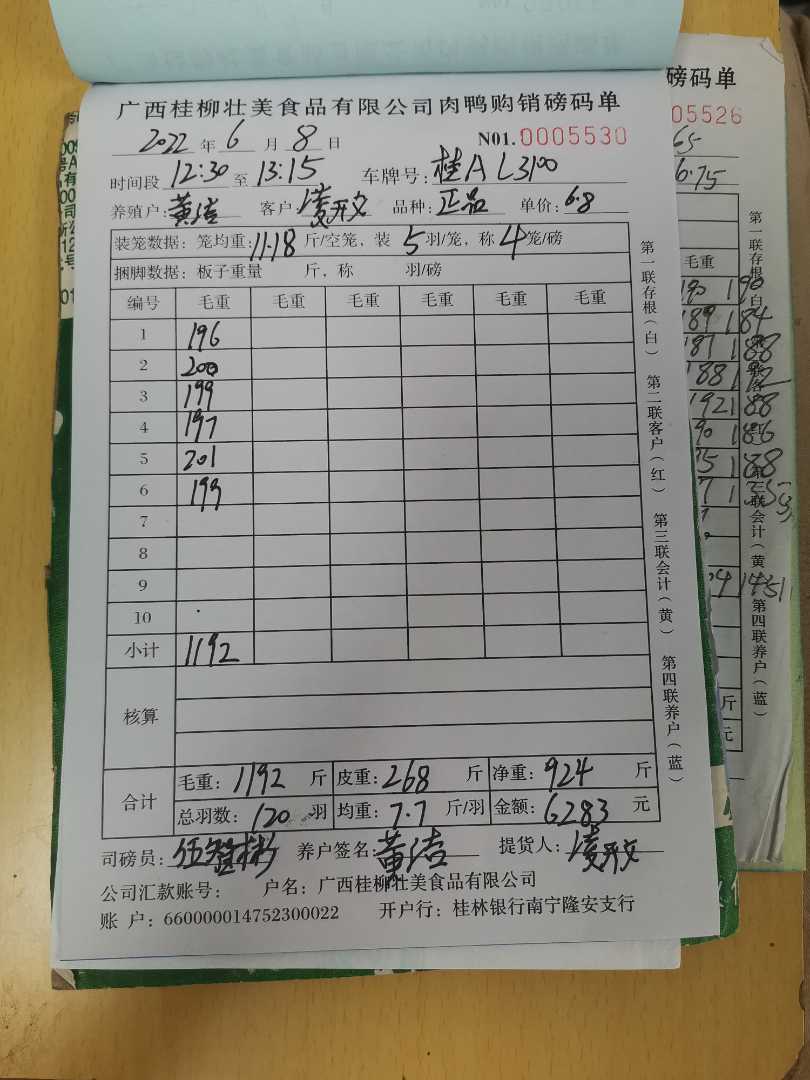 广西桂柳壮美食品有限公司肉鸭购销磅码单
2022 年 6 月 8 日 N01.0005530
时间段 12:30 至 13:15 车牌号: 桂A L3100
养殖户: 黄洁 客户: 凌开文 品种: 正品 单价: 6.8
装笼数据: 笼均重: 11.18 斤/空笼, 装 5 羽/笼, 称 4 笼/磅
捆脚数据: 板子重量 斤, 称 羽/磅
编号 毛重 毛重 毛重 毛重 毛重 毛重
1 196
2 200
3 199
4 197
5 201
6 199
7
8
9
10
小计 1192
核算
合计 毛重: 1192 斤 皮重: 268 斤 净重: 924 斤
总羽数: 120 羽 均重: 7.7 斤/羽 金额: 6283 元
司磅员: 养户签名: 黄洁 提货人: 凌开文
公司汇款账号: 户名: 广西桂柳壮美食品有限公司
账 户: 660000014752300022 开户行: 桂林银行南宁隆安支行
第一联存根(白) 第二联客户(红) 第三联会计(黄) 第四联养户(蓝)
磅码单
05526
65
6.75
毛重
190 190
189 184
187 188
188
192 188
90 186
75 188
斤
元
第一联存根(白
第三联会计(黄
第四联养户(蓝)